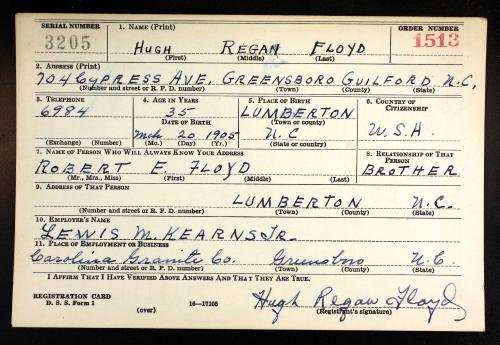 SERIAL NUMBER 1. NAME (Print) ORDER NUMBER
3205 HUGH REGAN FLOYD 1513
(First) (Middle) (Last)
2. ADDRESS (Print)
704 CYPRESS AVE. GREENSBORO GUILFORD N.C.
(Number and street or R. F. D. number) (Town) (County) (State)
3. TELEPHONE 4. AGE IN YEARS 5. PLACE OF BIRTH 6. COUNTRY OF CITIZENSHIP
6984 35 LUMBERTON
DATE OF BIRTH (Town or county)
Mch. 20 1905 N.C. U.S.A.
(Exchange) (Number) (Mo.) (Day) (Yr.) (State or country)
7. NAME OF PERSON WHO WILL ALWAYS KNOW YOUR ADDRESS 8. RELATIONSHIP OF THAT PERSON
ROBERT E. FLOYD BROTHER
(Mr., Mrs., Miss) (First) (Middle) (Last)
9. ADDRESS OF THAT PERSON
LUMBERTON N.C.
(Number and street or R. F. D. number) (Town) (County) (State)
10. EMPLOYER'S NAME
LEWIS M. KEARNS JR.
11. PLACE OF EMPLOYMENT OR BUSINESS
Carolina Granite Co. Greensboro N.C.
(Number and street or R. F. D. number) (Town) (County) (State)
I AFFIRM THAT I HAVE VERIFIED ABOVE ANSWERS AND THAT THEY ARE TRUE.
REGISTRATION CARD Hugh Regan Floyd
D. S. S. Form 1 (over) 16—17105 (Registrant's signature)